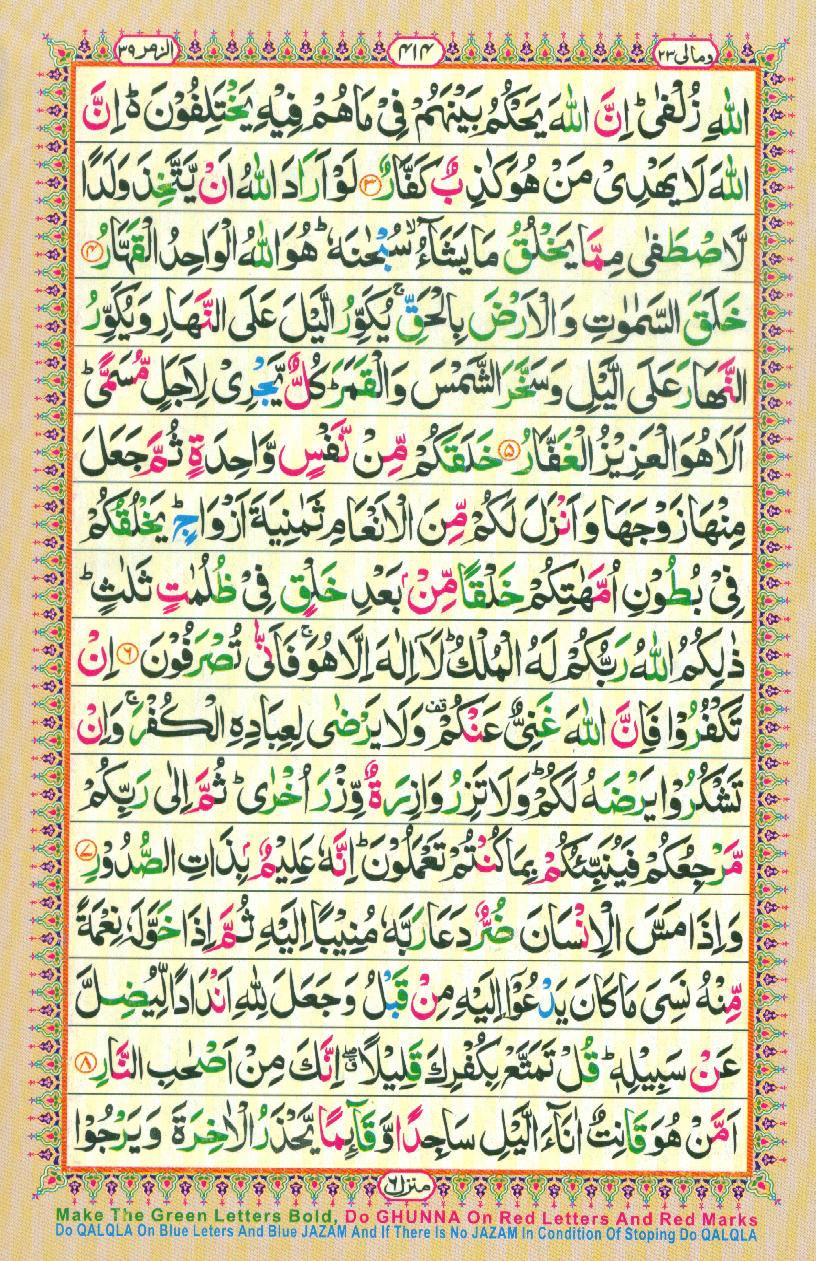 ومالی ۲۳
۴۱۴
الزمر ۳۹
اللّٰهِ زُلْفٰىؕ اِنَّ اللّٰهَ یَحْكُمُ بَیْنَهُمْ فِیْ مَا هُمْ فِیْهِ یَخْتَلِفُوْنَ۬ؕ اِنَّ
اللّٰهَ لَا یَهْدِیْ مَنْ هُوَ كٰذِبٌ كَفَّارٌ ﴿۳﴾ لَوْ اَرَادَ اللّٰهُ اَنْ یَّتَّخِذَ وَلَدًا
لَّاصْطَفٰى مِمَّا یَخْلُقُ مَا یَشَآءُۙ سُبْحٰنَهٗؕ هُوَ اللّٰهُ الْوَاحِدُ الْقَهَّارُ ﴿۴﴾
خَلَقَ السَّمٰوٰتِ وَ الْاَرْضَ بِالْحَقِّۚ یُكَوِّرُ الَّیْلَ عَلَى النَّهَارِ وَیُكَوِّرُ
النَّهَارَ عَلَى الَّیْلِ وَسَخَّرَ الشَّمْسَ وَالْقَمَرَؕ كُلٌّ یَّجْرِیْ لِاَجَلٍ مُّسَمًّىؕ
اَلَا هُوَ الْعَزِیْزُ الْغَفَّارُ ﴿۵﴾ خَلَقَكُمْ مِّنْ نَّفْسٍ وَّاحِدَةٍ ثُمَّ جَعَلَ
مِنْهَا زَوْجَهَا وَ اَنْزَلَ لَكُمْ مِّنَ الْاَنْعَامِ ثَمٰنِیَةَ اَزْوَاجٍؕ یَخْلُقُكُمْ
فِیْ بُطُوْنِ اُمَّهٰتِكُمْ خَلْقًا مِّنْۢ بَعْدِ خَلْقٍ فِیْ ظُلُمٰتٍ ثَلٰثٍؕ
ذٰلِكُمُ اللّٰهُ رَبُّكُمْ لَهُ الْمُلْكُؕ لَاۤ اِلٰهَ اِلَّا هُوَۚ فَاَنّٰى تُصْرَفُوْنَ ﴿۶﴾ اِنْ
تَكْفُرُوْا فَاِنَّ اللّٰهَ غَنِیٌّ عَنْكُمْ۫ وَلَا یَرْضٰى لِعِبَادِهِ الْكُفْرَۚ وَاِنْ
تَشْكُرُوْا یَرْضَهُ لَكُمْؕ وَلَا تَزِرُ وَازِرَةٌ وِّزْرَ اُخْرٰىؕ ثُمَّ اِلٰى رَبِّكُمْ
مَّرْجِعُكُمْ فَیُنَبِّئُكُمْ بِمَا كُنْتُمْ تَعْمَلُوْنَؕ اِنَّهٗ عَلِیْمٌۢ بِذَاتِ الصُّدُوْرِ ﴿۷﴾
وَ اِذَا مَسَّ الْاِنْسَانَ ضُرٌّ دَعَا رَبَّهٗ مُنِیْبًا اِلَیْهِ ثُمَّ اِذَا خَوَّلَهٗ نِعْمَةً
مِّنْهُ نَسِیَ مَا كَانَ یَدْعُوْۤا اِلَیْهِ مِنْ قَبْلُ وَ جَعَلَ لِلّٰهِ اَنْدَادًا لِّیُضِلَّ
عَنْ سَبِیْلِهٖؕ قُلْ تَمَتَّعْ بِكُفْرِكَ قَلِیْلًا اِنَّكَ مِنْ اَصْحٰبِ النَّارِ ﴿۸﴾
اَمَّنْ هُوَ قَانِتٌ اٰنَآءَ الَّیْلِ سَاجِدًا وَّقَآئِمًا یَّحْذَرُ الْاٰخِرَةَ وَ یَرْجُوْا
منزل ۶
Make The Green Letters Bold, Do GHUNNA On Red Letters And Red Marks
Do QALQLA On Blue Leters And Blue JAZAM And If There Is No JAZAM In Condition Of Stoping Do QALQLA